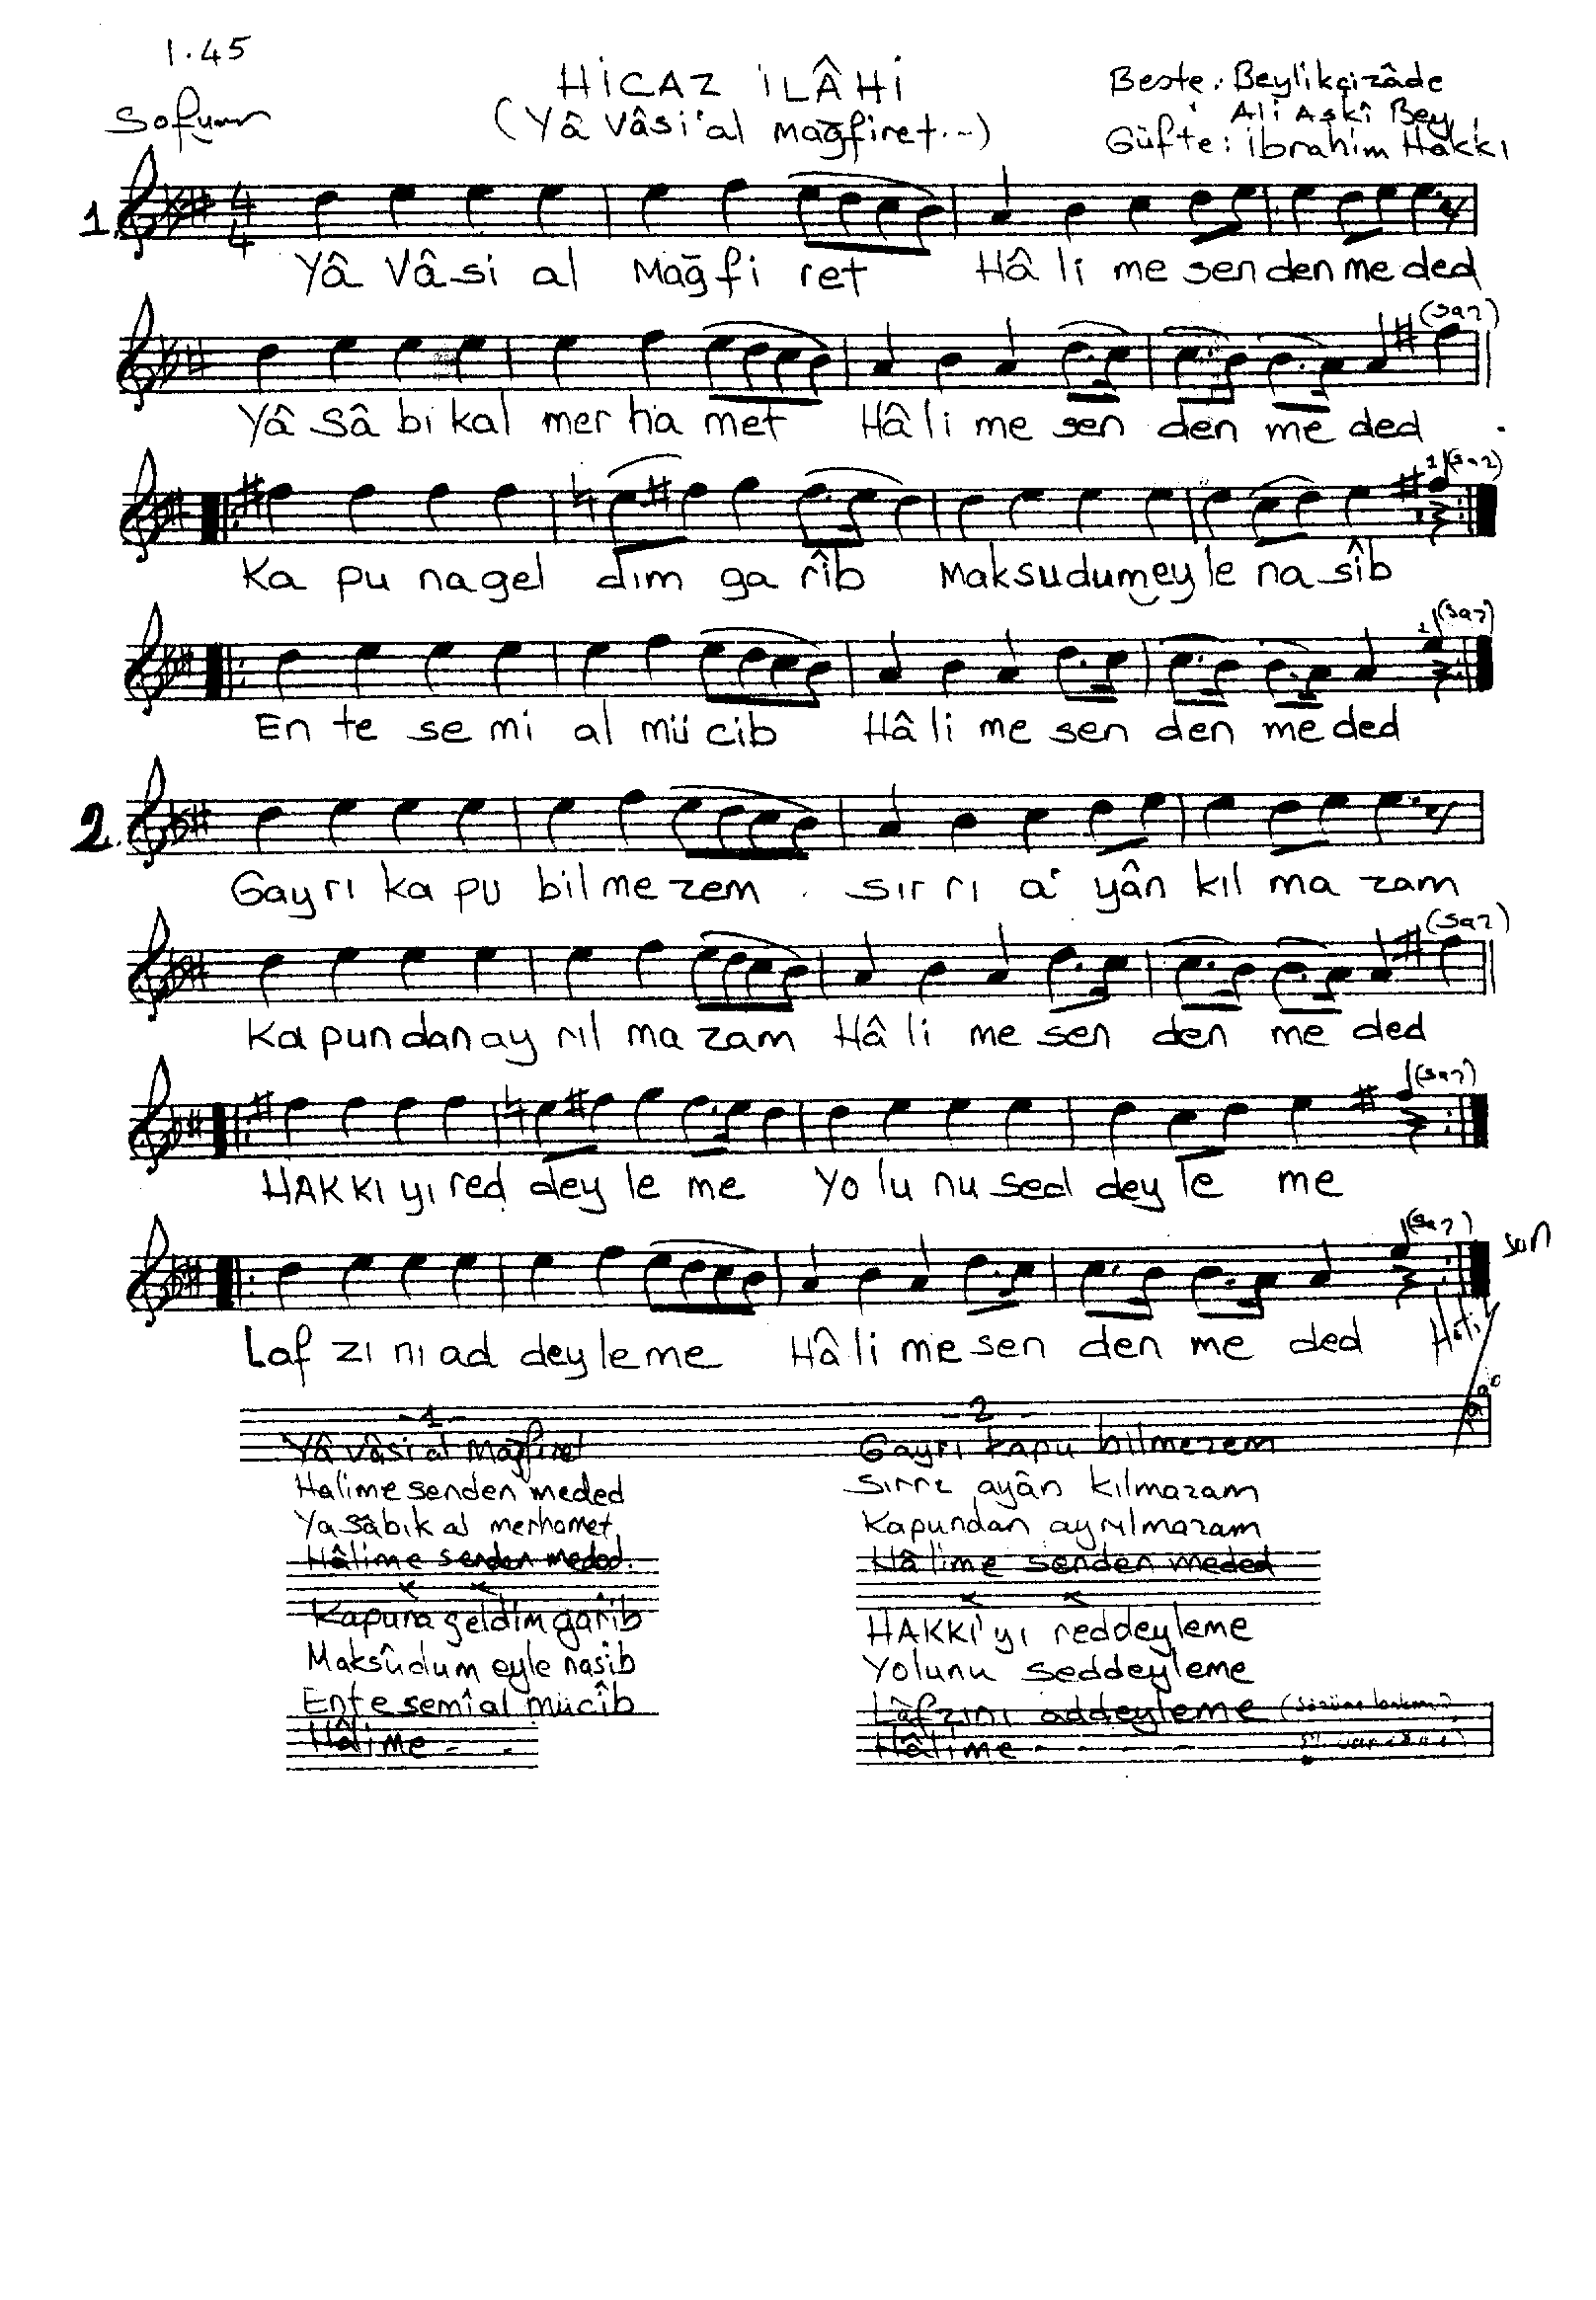 1.45
HİCAZ İLÂHİ
Beste: Beylikçizâde
Sofyan
(Yâ Vâsi'al mağfiret...)
Ali Aşkî Bey
Güfte: İbrahim Hakkı
4
4
1.
Yâ Vâ si al Mağ fi ret Hâ li me sen den me ded
(saz)
Yâ Sâ bi kal mer ha met Hâ li me sen den me ded
(saz)
Ka pu na gel dım ga rîb Maksudum eyle na sîb
(saz)
En te se mi al mü cib Hâ li me sen den me ded
2.
Gay rı ka pu bil me zem sır rı a' yân kıl ma zam
(saz)
Ka pun dan ay rıl ma zam Hâ li me sen den me ded
(saz)
HAKKI yı red dey le me Yo lu nu sed dey le me
(saz)
son
Laf zı nı ad dey le me Hâ li me sen den me ded
-1-
Yâ vâsi al Mağfiret
Halime senden meded
Ya sâbık al merhamet
Hâlime senden meded.
Kapuna geldim garîb
Maksûdum eyle nasib
Ente semîal mücîb
Hâlime - .
2
Gayrı kapu bilmezem
Sırrı ayân kılmazam
Kapundan ayrılmazam
Hâlime senden meded
HAKKI'yı reddeyleme
Yolunu seddeyleme
Lâfzını addeyleme
Hâlime